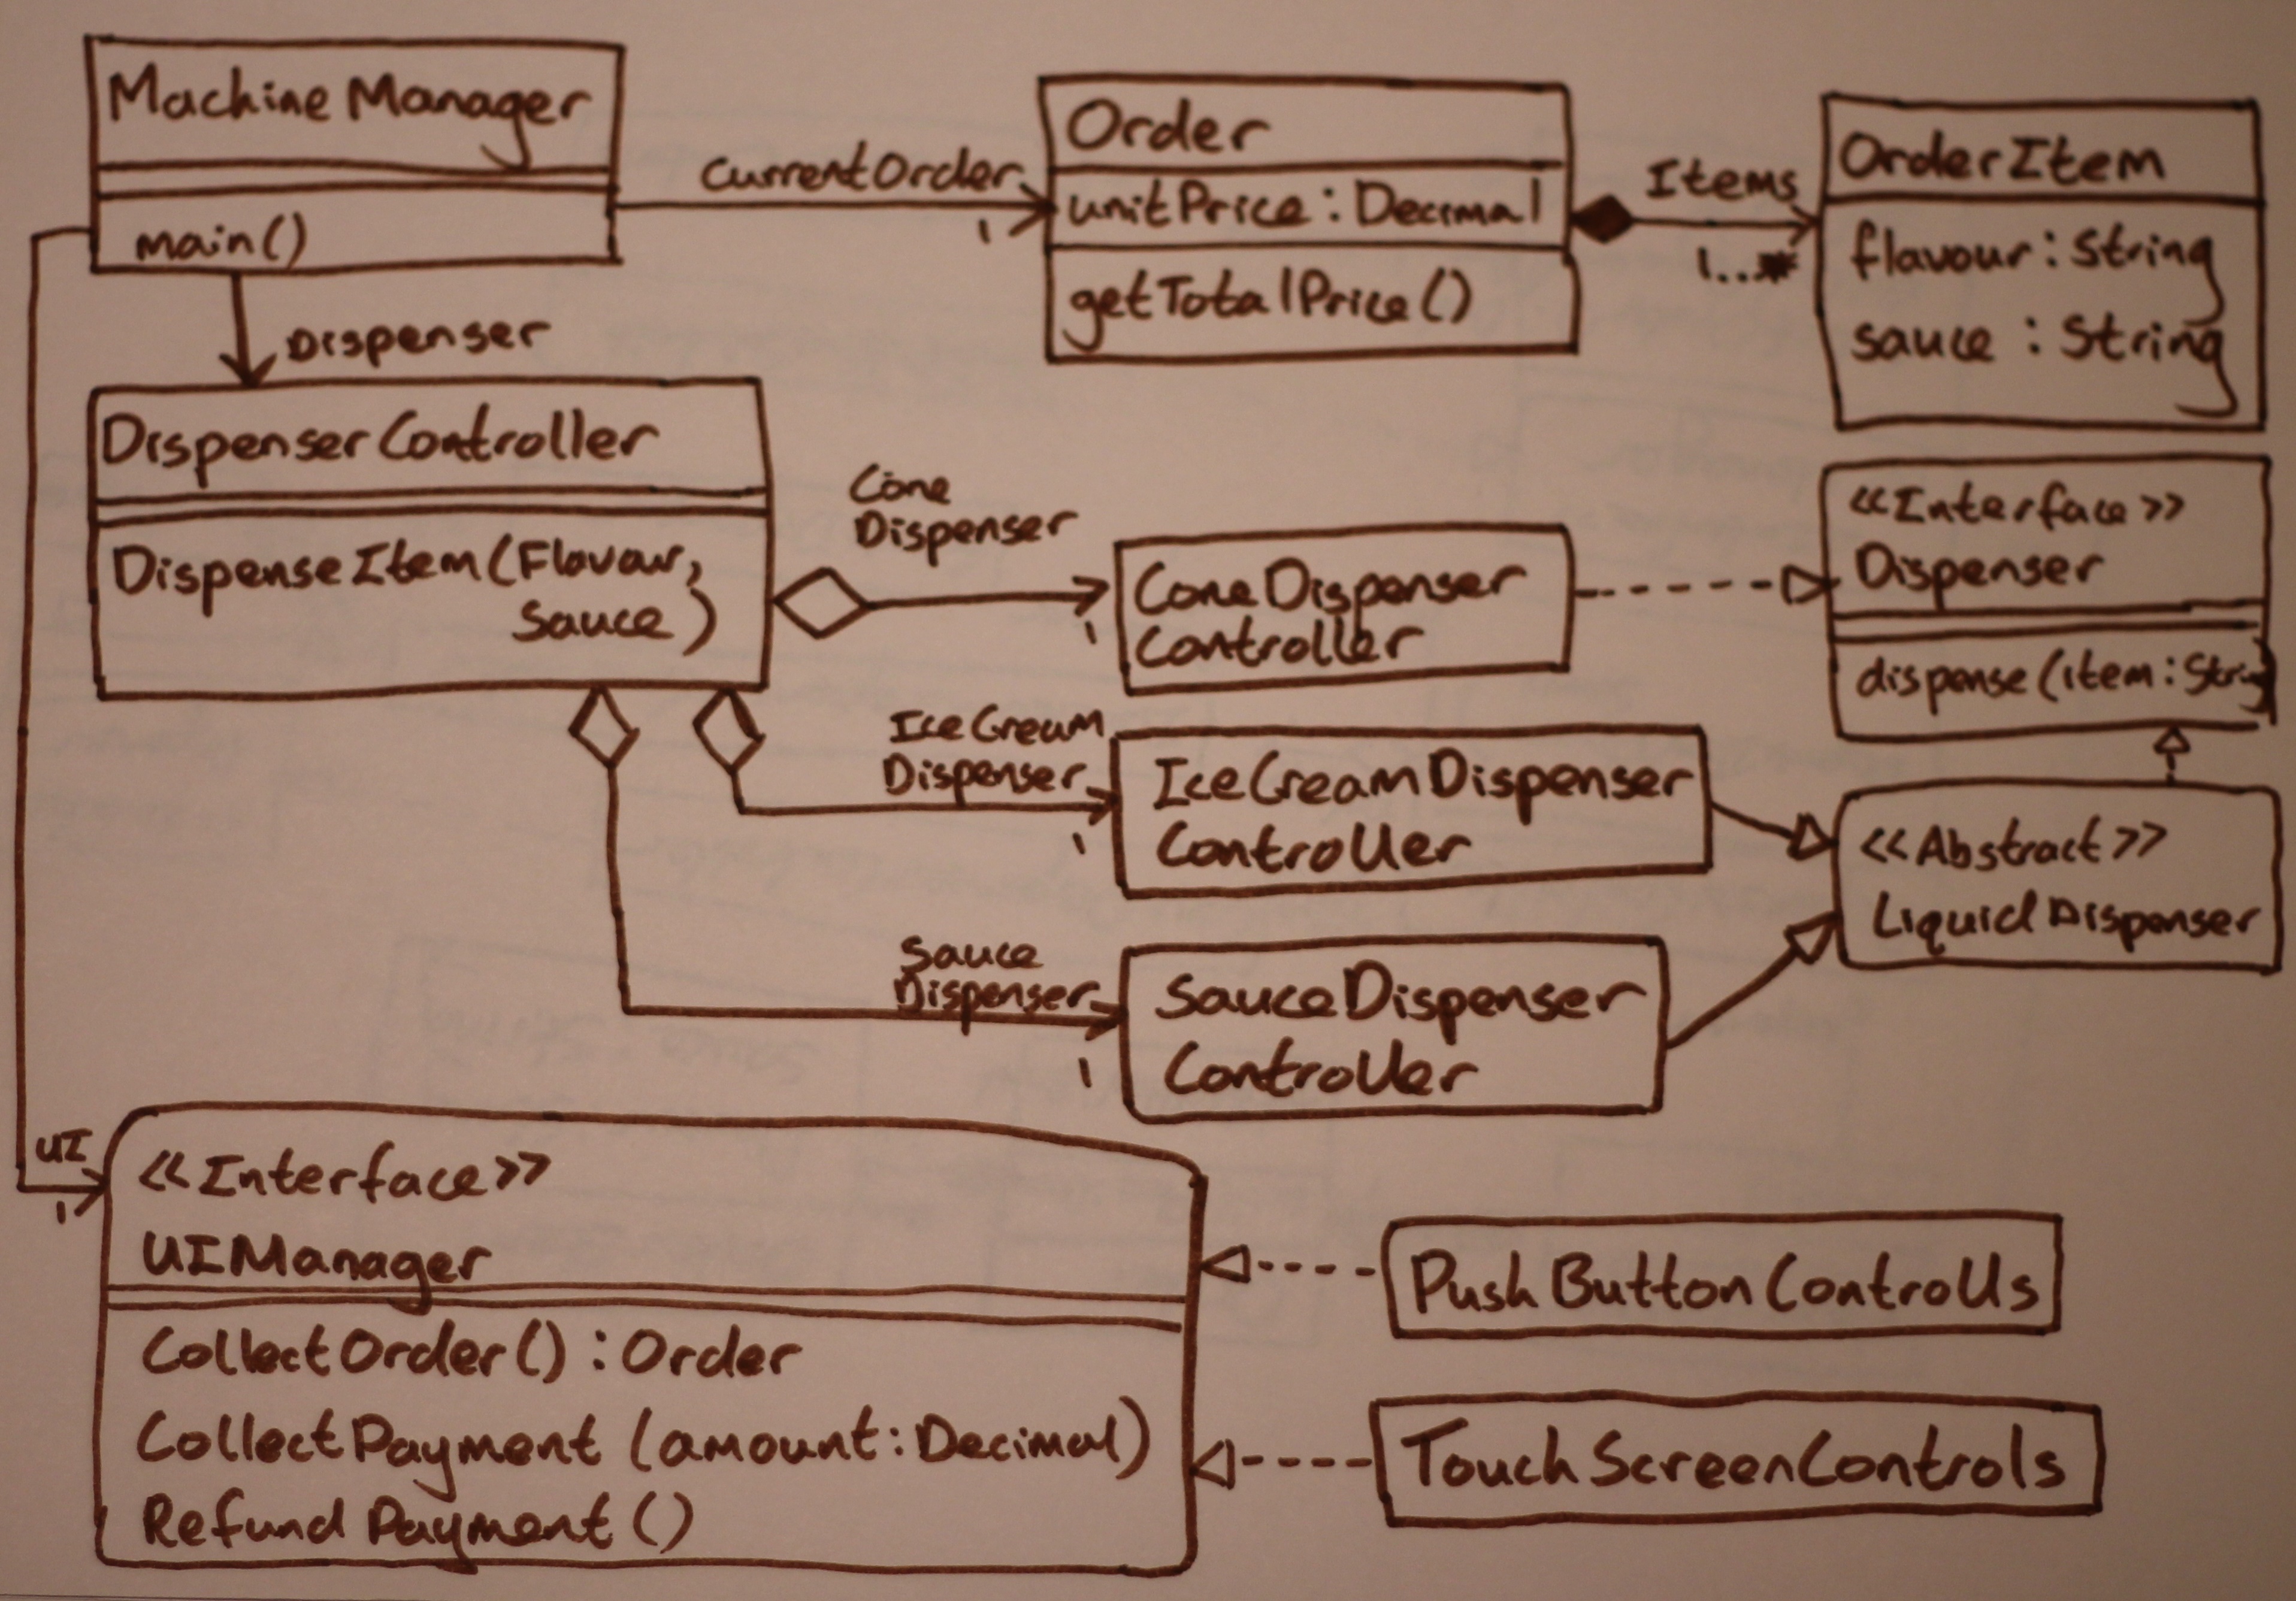 MachineManager
main()
CurrentOrder
1
Order
unitPrice : Decimal
getTotalPrice()
Items
1..*
OrderItem
flavour : String
sauce : String
Dispenser
DispenserController
DispenseItem(Flavour,
Sauce)
Cone
Dispenser
1
ConeDispenser
Controller
<<Interface>>
Dispenser
dispense(item : String)
IceCream
Dispenser
1
IceCreamDispenser
Controller
<<Abstract>>
LiquidDispenser
Sauce
Dispenser
1
SauceDispenser
Controller
UI
1
<<Interface>>
UIManager
CollectOrder() : Order
CollectPayment (amount : Decimal)
Refund Payment ()
PushButtonControlls
TouchScreenControls